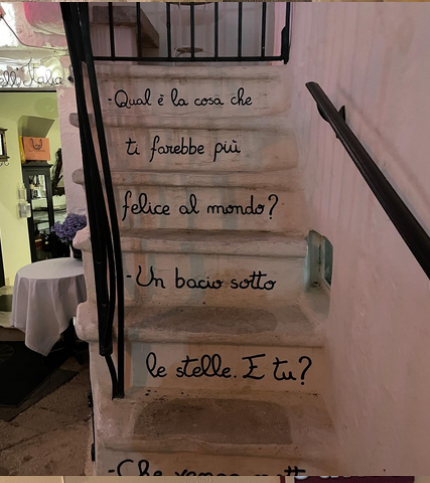 -Qual è la cosa che
ti farebbe più
felice al mondo?
-Un bacio sotto
le stelle. E tu?
-Che